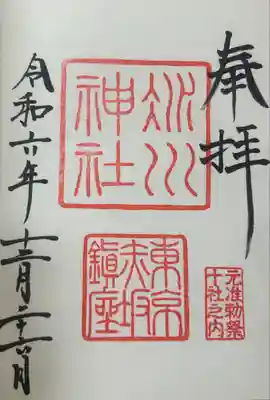 奉拝
氷川神社
元准勅祭
十社之内
東京
赤坂
鎮座
令和六年十二月二十六日